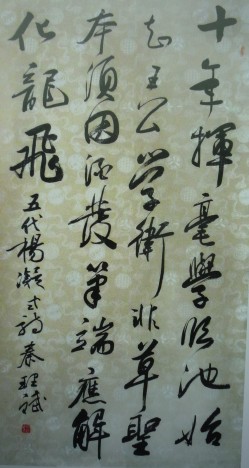 十年揮毫學臨池始
知王公學衛非草聖
本須因酒發筆端應解
化龍飛
五代楊凝式詩 秦理斌